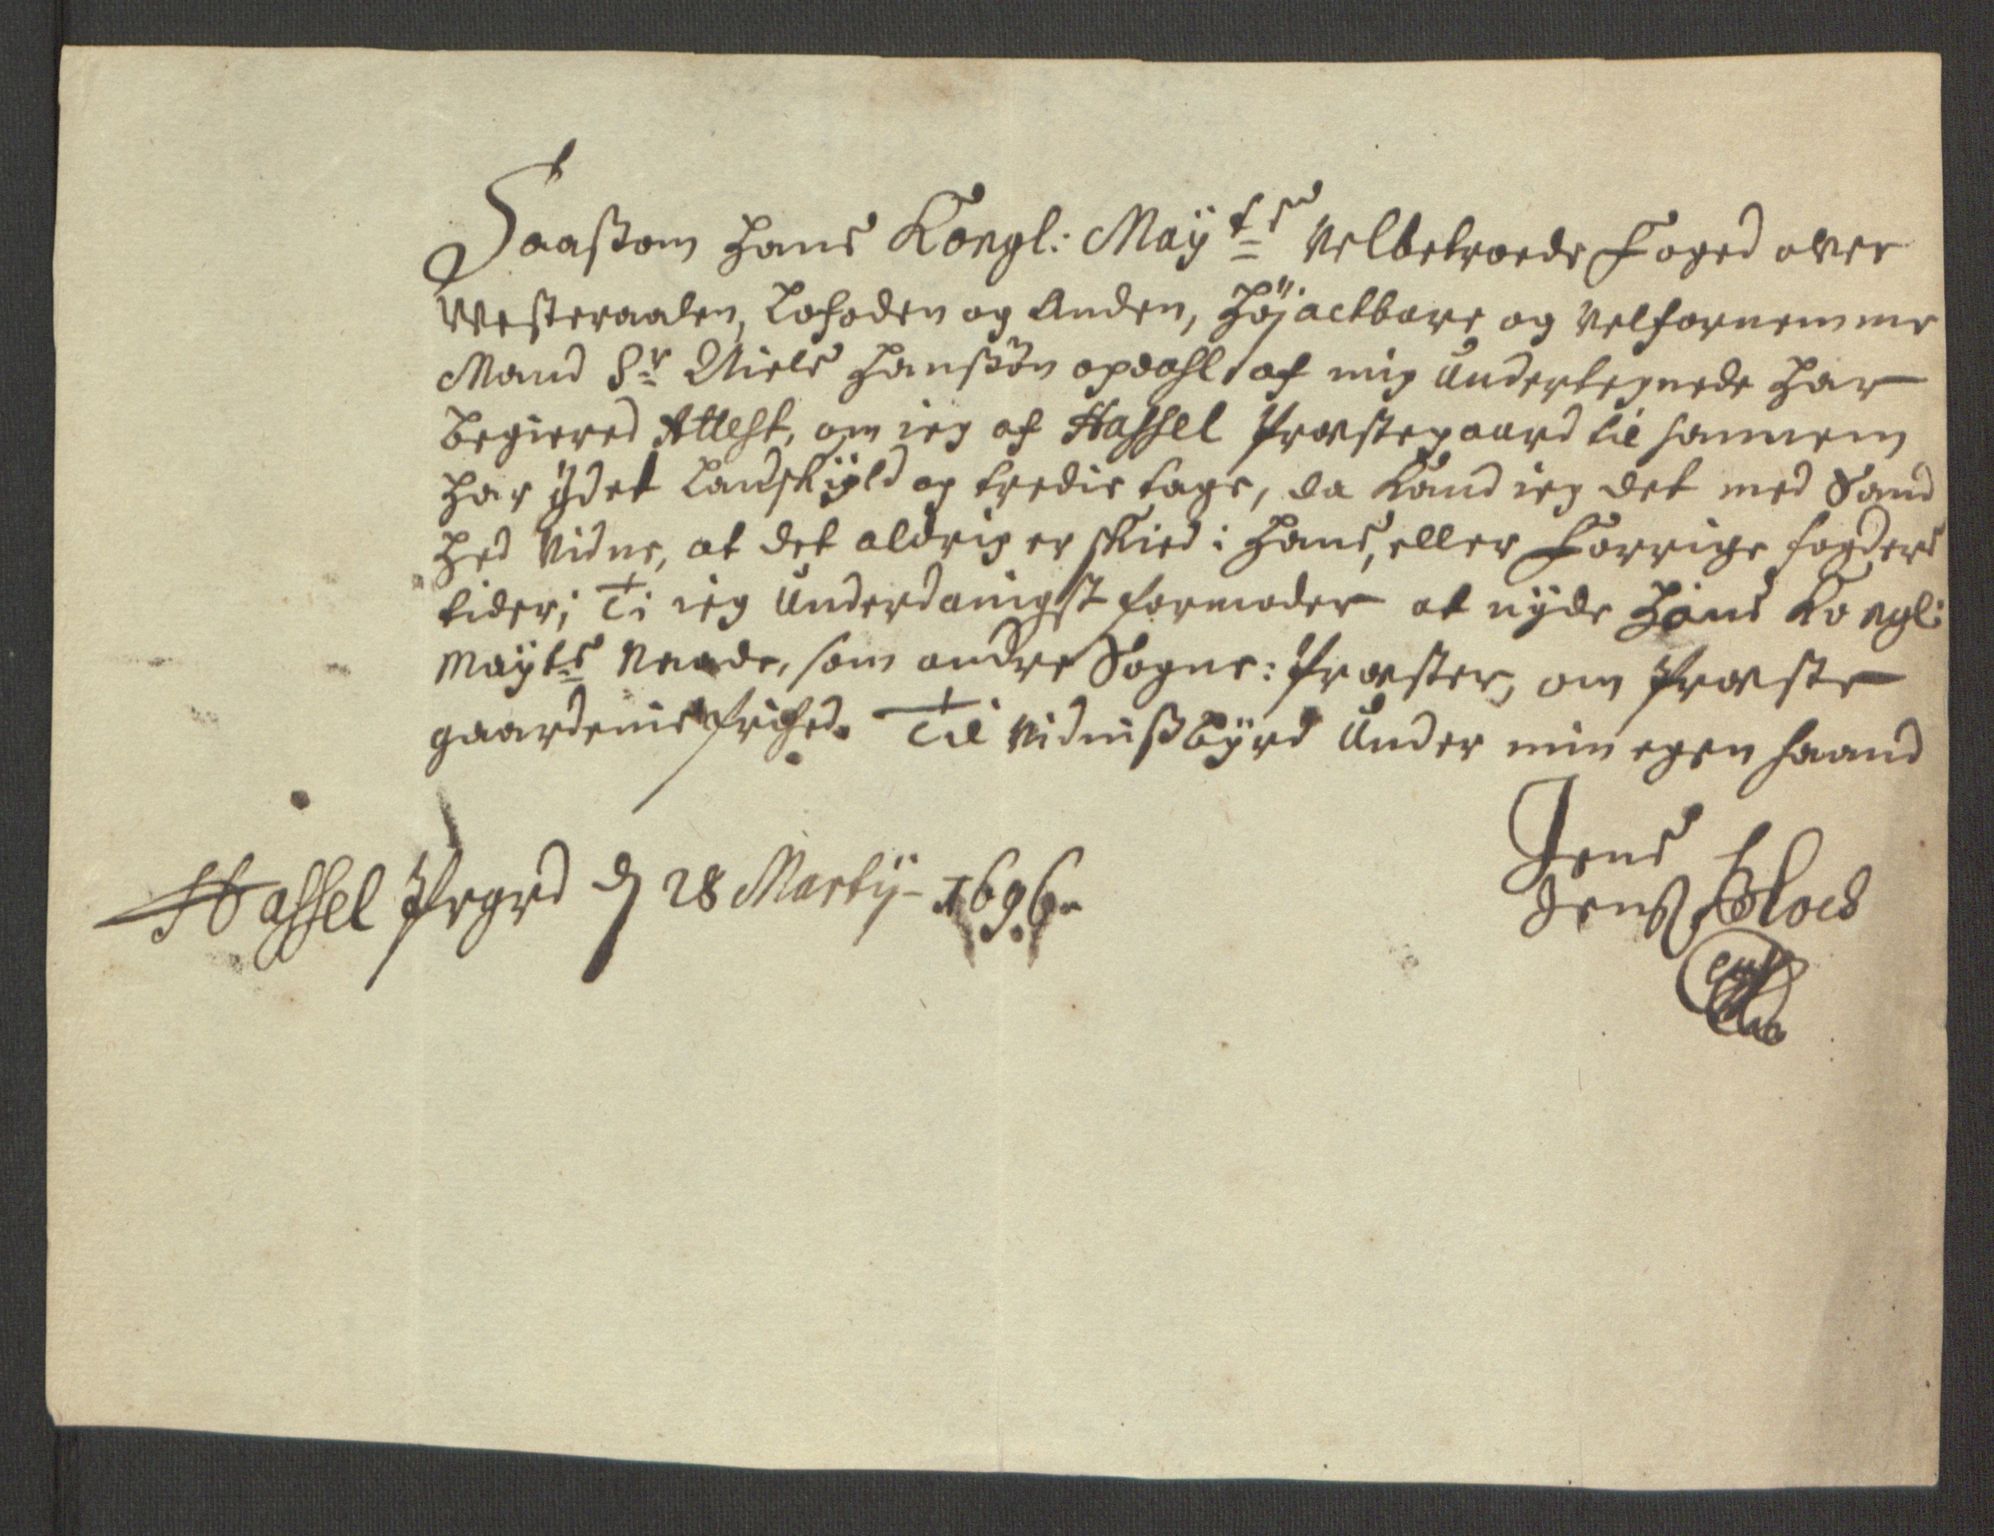 Saasom Hans Kongl: Maÿts Velbetroede Foged over
Westeraalen, Lofoden og Anden, Höjactbare og Velfornemme
Mand Sr Niels Hanßön opdahl af mig Undertegnede Har
begiered Attest, om ieg af Hassel Præstegaard til hannem
Har ÿdet Landskÿld og tredie tage, da kand ieg det med Sand
Hed Vidne, at det aldrig er skied i Hans, eller Forrige fogders
tider; Ti ieg Underdanigst formoder at nÿde Hans Kongl:
Maÿts Naade, som andre Sogne: Præster, om Præste
gaardenis frihed. Til Vidnißbÿrd Under min egen haand
Hassel Prgrd d 28 Martÿ 1696
Jens
Jenß Bloch